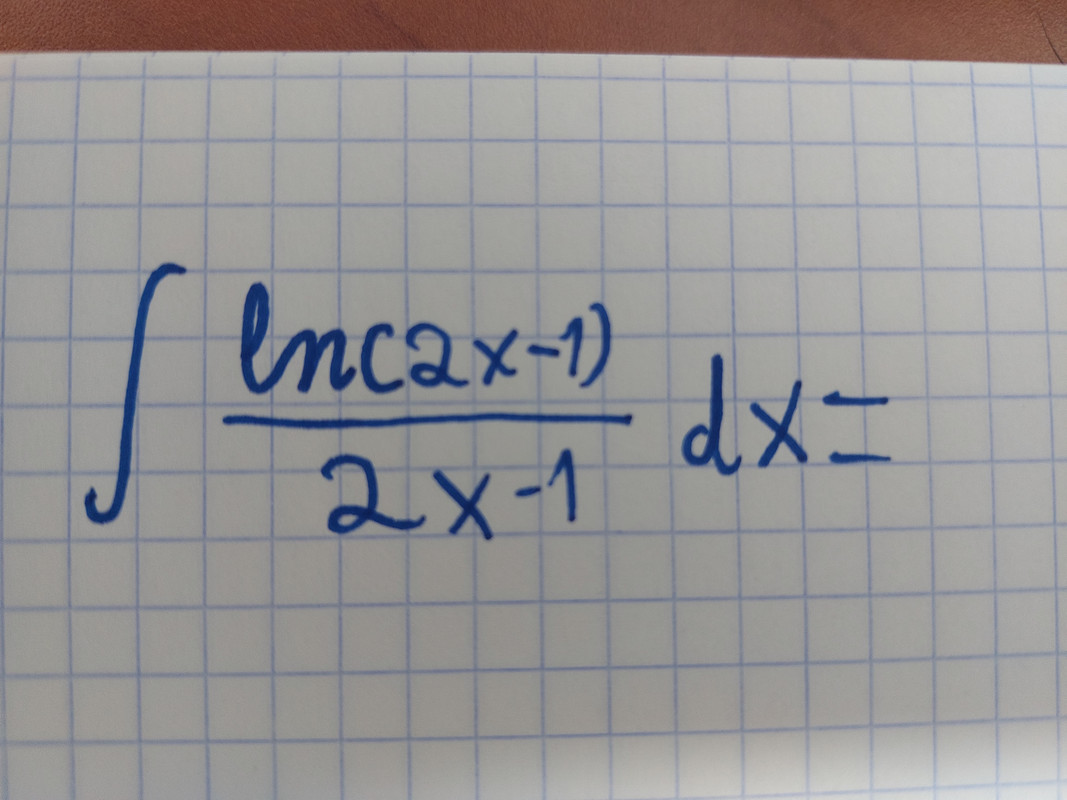 ∫ ln(2x-1)/2x-1 dx=